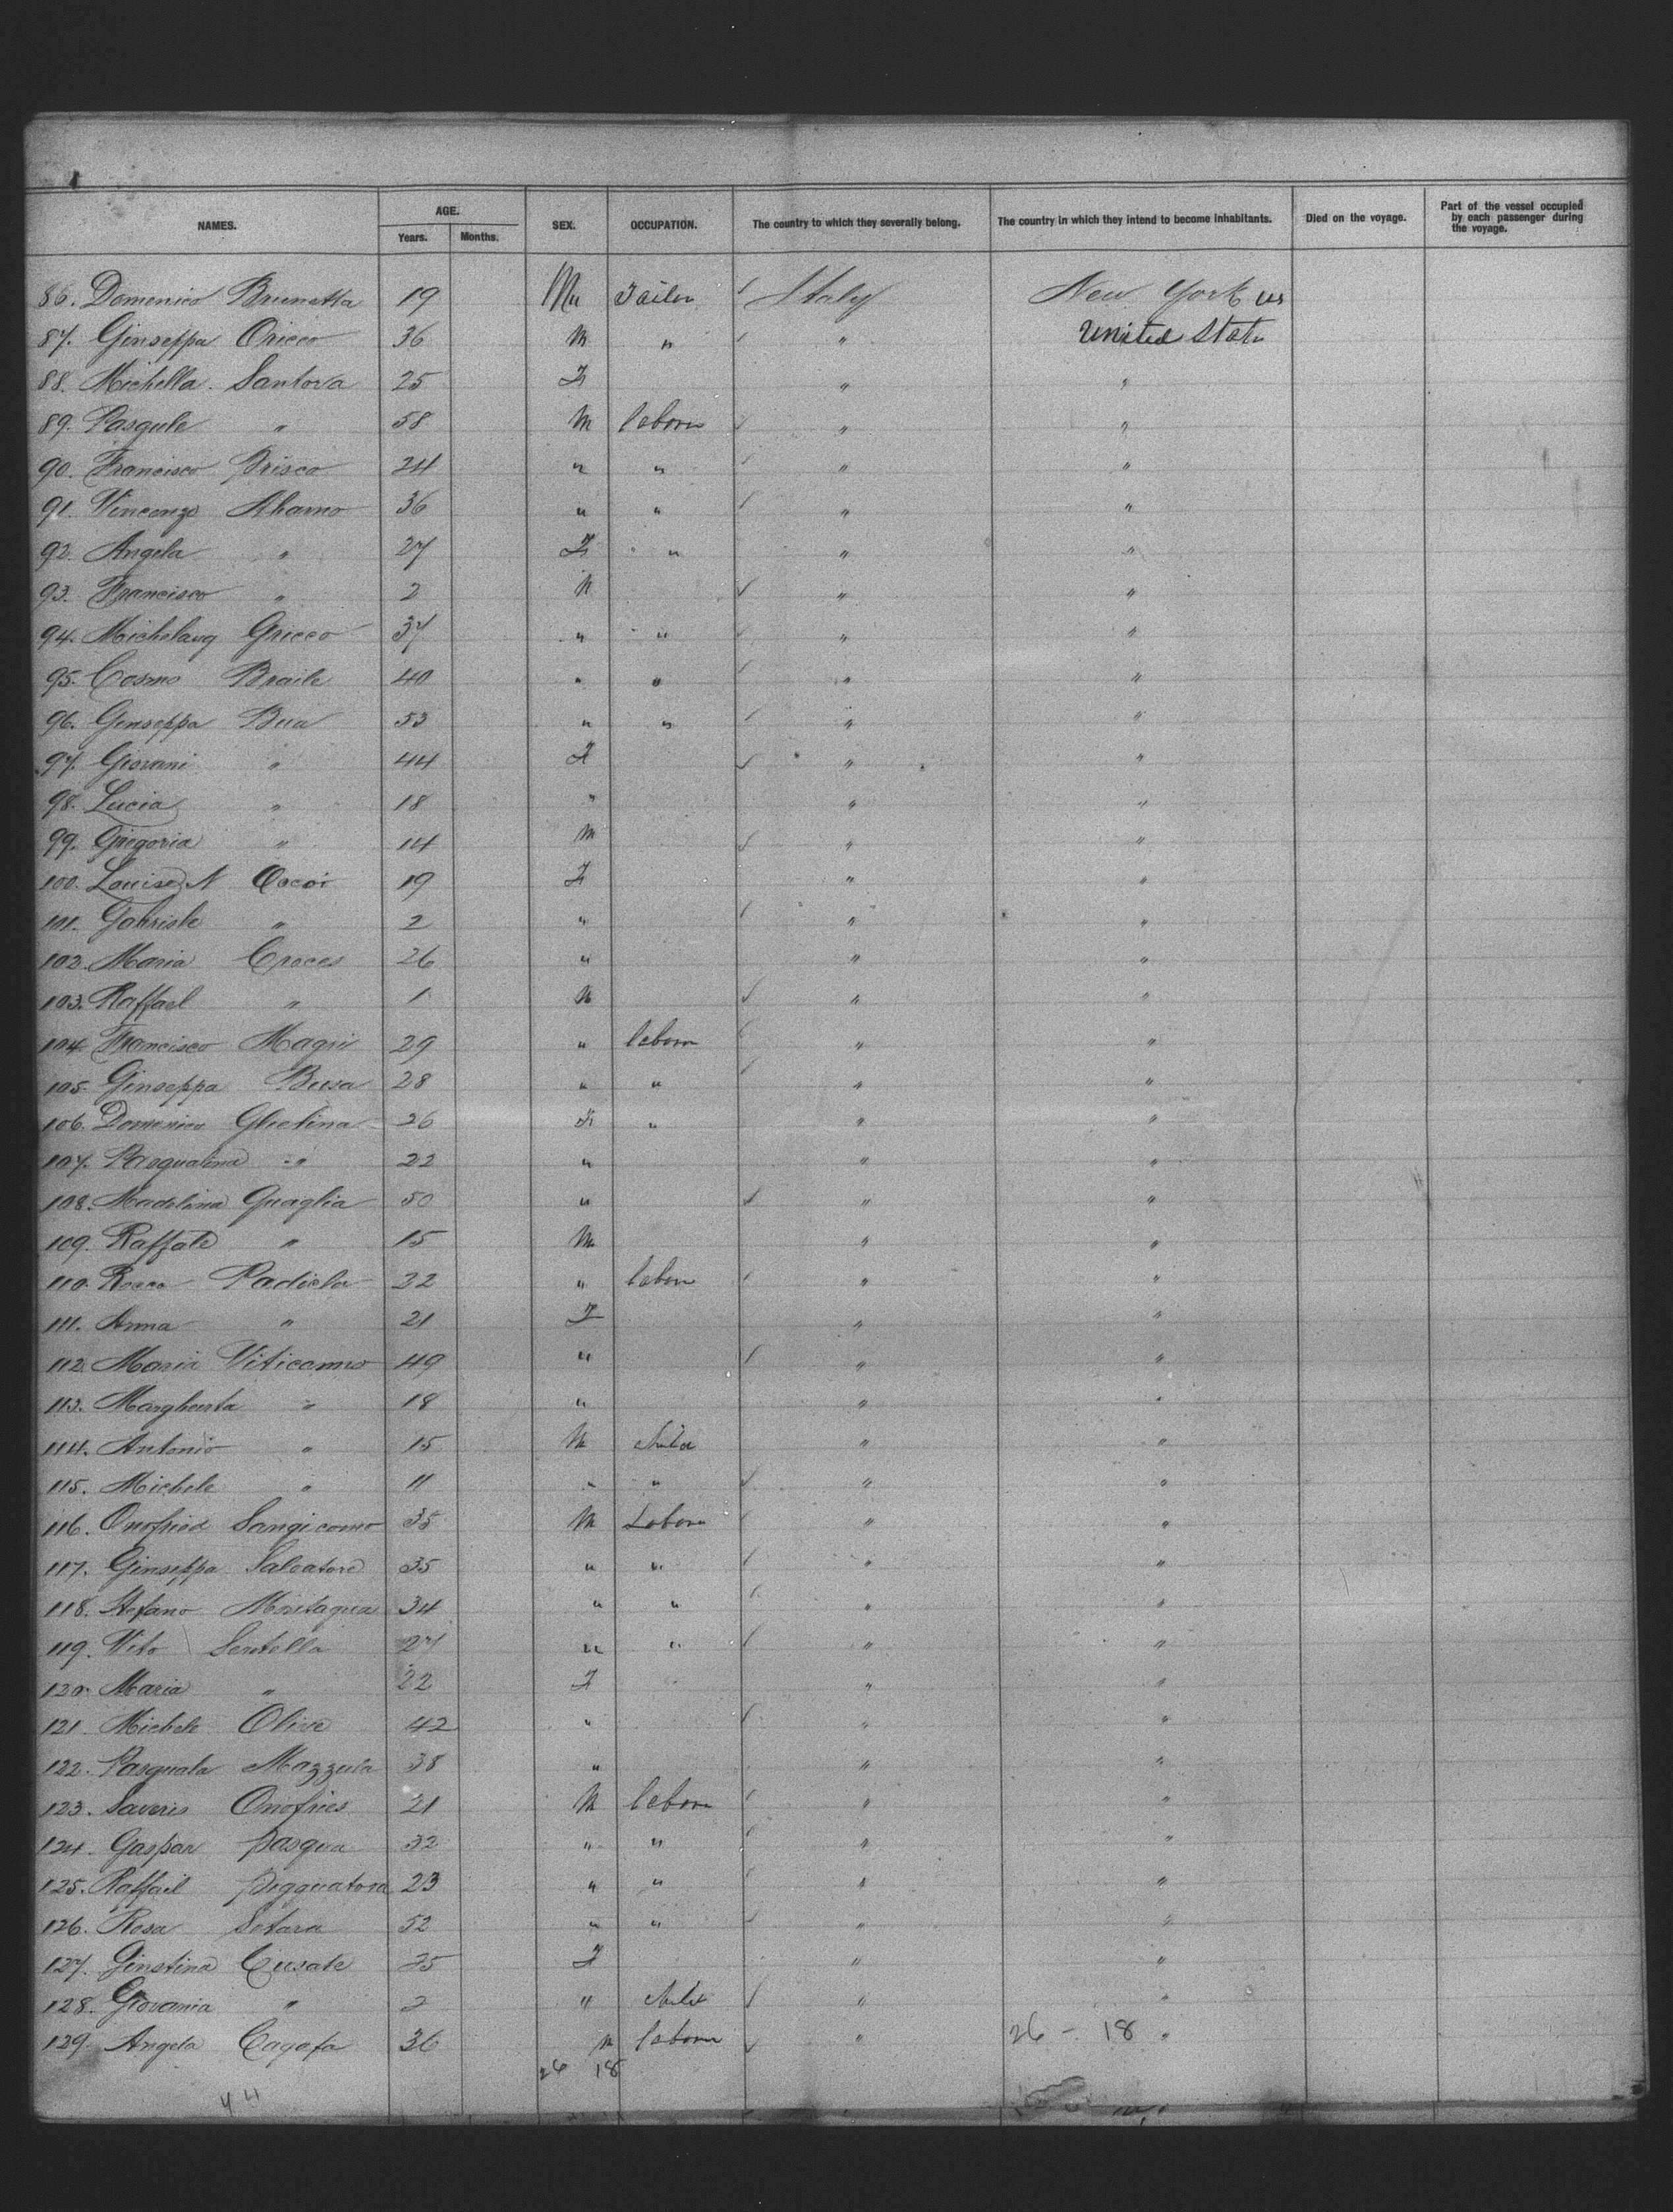 NAMES. AGE. Years. Months. SEX. OCCUPATION. The country to which they severally belong. The country in which they intend to become inhabitants. Died on the voyage. Part of the vessel occupied by each passenger during the voyage.
86. Domenico Brunetta 19 M Tailor ✓ Italy New York us
87. Ginseppa Oricco 36 M " ✓ " United State
88. Michella Santora 25 F " "
89. Pasqule " 58 M laborer ✓ " "
90. Francisco Prisco 24 " " ✓ " "
91. Vincenzo Ahamo 36 " " ✓ " "
92. Angela " 27 F " " "
93. Francisco " 2 M ✓ " "
94. Michelang Grecco 37 " " ✓ " "
95. Cosmo Braile 40 " " ✓ " "
96. Ginseppa Bua 53 " " ✓ " "
97. Giovani " 44 F ✓ " "
98. Lucia " 18 " " "
99. Gregoria " 14 M ✓ " "
100. Louise N Cocoi 19 F " "
101. Gabriele " 2 " ✓ " "
102. Maria Croces 26 " " "
103. Raffael " 1 M ✓ " "
104. Francisco Magri 29 " laborer ✓ " "
105. Ginseppa Busa 28 " " ✓ " "
106. Domenico Gletina 26 F " " "
107. Pasqualina " 22 " " "
108. Madelina Guaglia 50 " ✓ " "
109. Raffale " 15 M " "
110. Rocco Padiela 32 " laborer ✓ " "
111. Anna " 21 F " "
112. Maria Viticanno 49 " ✓ " "
113. Margherita " 18 " " "
114. Antonio " 15 M child " "
115. Michele " 11 " " ✓ " "
116. Onofried Sangicomo 35 M Laborer ✓ " "
117. Ginseppa Salvatore 35 " " ✓ " "
118. Stefano Montagna 34 " " ✓ " "
119. Vito Sentella 27 " " ✓ " "
120. Maria " 22 F " "
121. Michele Olive 42 " ✓ " "
122. Pasquala Mazzula 38 " " "
123. Saverio Onofries 21 M laborer ✓ " "
124. Gaspar Pasqua 32 " " ✓ " "
125. Raffail Pigguatora 23 " " ✓ " "
126. Rosa Setara 52 " " ✓ " "
127. Ginstina Cusate 25 F " "
128. Giovania " 2 " child ✓ " "
129. Angelo Cagafa 36 M laborer ✓ " 26 - 18 "
26 18
44